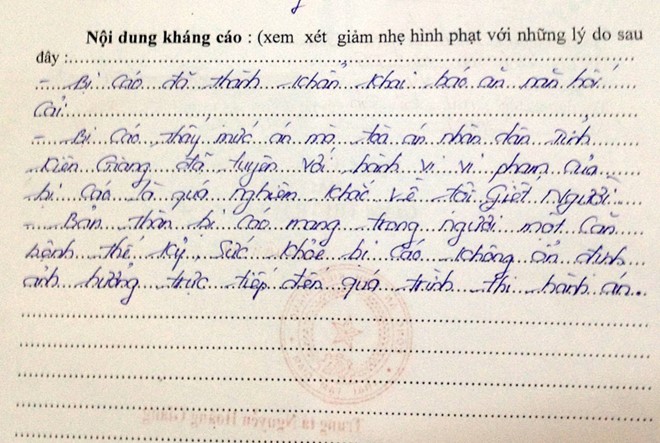 Nội dung kháng cáo : (xem xét giảm nhẹ hình phạt với những lý do sau
đây :
- Bị cáo đã thành khẩn khai báo ăn năn hối
Cải.
- Bị cáo thấy mức án mà toà án nhân dân tỉnh
Kiên Giang đã tuyên với hành vi vi phạm của
bị cáo là quá nghiêm khắc về tội Giết Người.
- Bản thân bị cáo mang trong người một căn
bệnh thế kỷ, sức khỏe bị cáo không ổn định
ảnh hưởng trực tiếp đến quá trình thi hành án.
Trung tá Nguyễn Hoàng Giang